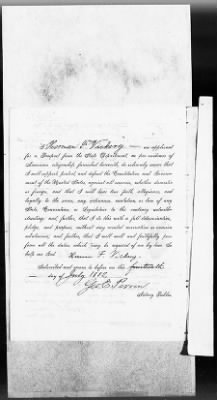 I Herman F. Vickery — an applicant
for a Passport from the State Department, as an evidence of
American citizenship furnished herewith, do solemnly swear that
I will support, protect, and defend the Constitution and Govern-
ment of the United States, against all enemies, whether domestic
or foreign, and that I will bear true faith, allegiance, and
loyalty to the same, any ordinance, resolution or law of any
State, Convention, or Legislature to the contrary notwith-
standing; and further, that I do this with a full determination,
pledge, and purpose, without any mental reservation or evasion
whatsoever; and further, that I will well and faithfully per-
form all the duties which may be required of me by law. So
help me God
Herman F. Vickery
Subscribed and sworn to before me this fourteenth
day of July 1892
Geo. E. Perrin
Notary Public